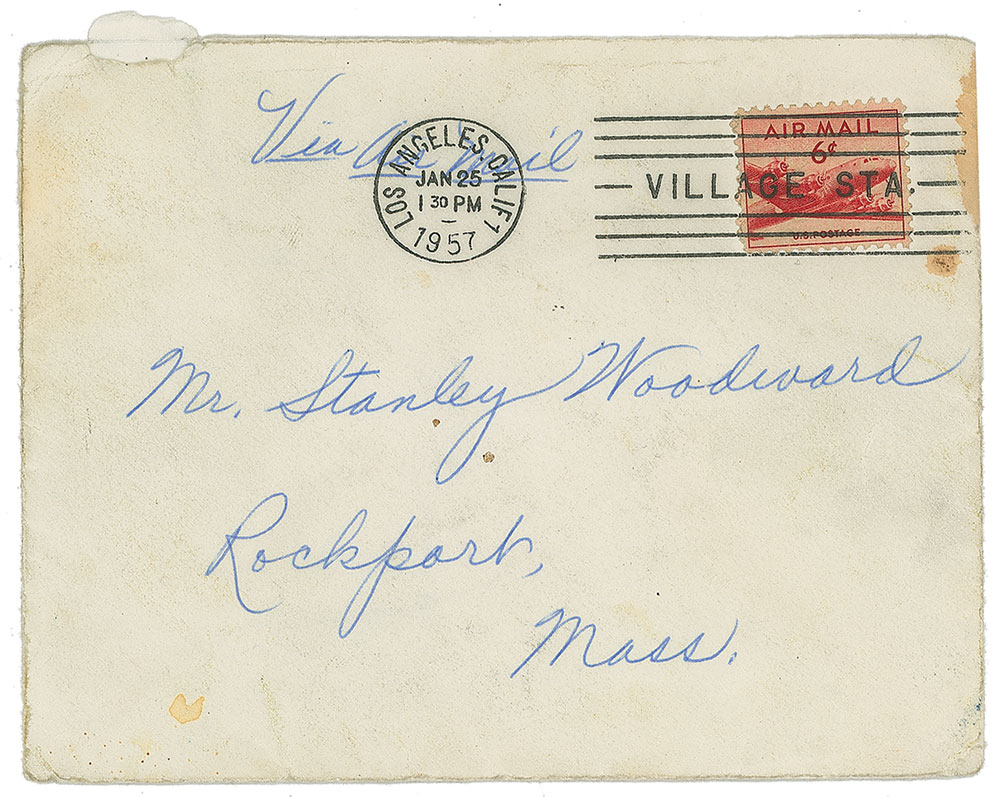 Via Air Mail
LOS ANGELES, CALIF 1
JAN 25
1 30 PM
1957
AIR MAIL
6¢
VILLAGE STA.
U.S. POSTAGE
Mr. Stanley Woodward
Rockport,
Mass.